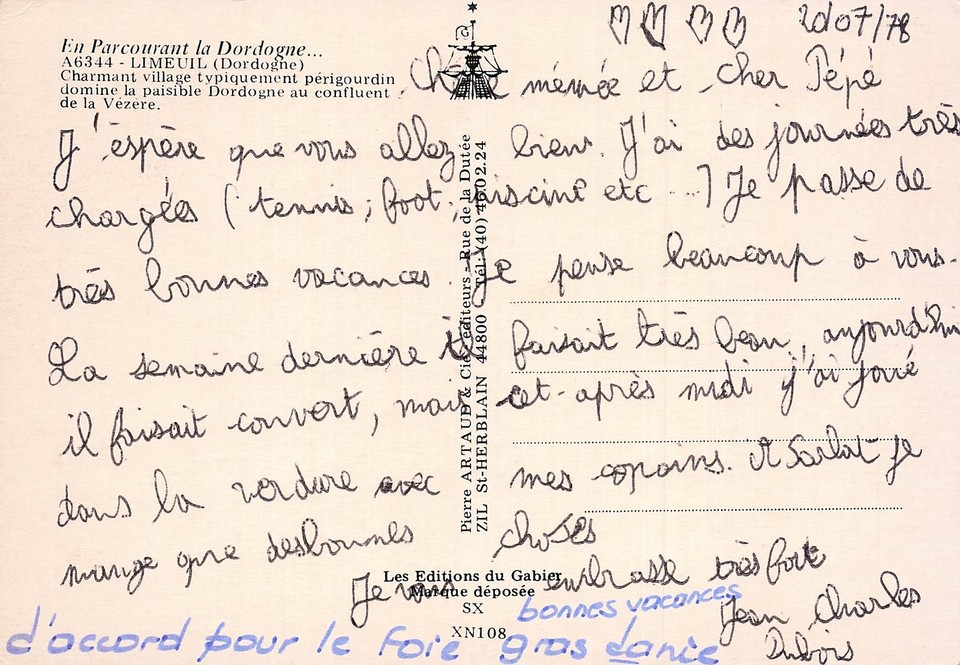 20/07/78
En Parcourant la Dordogne...
A6344 - LIMEUIL (Dordogne)
Charmant village typiquement périgourdin
domine la paisible Dordogne au confluent
de la Vézère.
Chère mémée et cher Pépé
J'éspère que vous allez biens. J'ai des journées très
chargées (tennis, foot, piscine etc ...) Je passe de
très bonnes vacances. Je pense beaucoup à vous.
La semaine dernière il faisait très beau, aujourd'hui
il faisait couvert, mais cet-après midi j'ai joué
dans la verdure avec mes copains. A Sarlat je
mange que desbonnes choses
Je vous embrasse très fort
Jean Charles
Dubois
bonnes vacances
d'accord pour le Foie gras danie
Pierre ARTAUD & Cie - Éditeurs - Rue de la Dutée
ZIL St-HERBLAIN 44800 Tél. (40) 46.02.24
Les Editions du Gabier
Marque déposée
SX
XN108